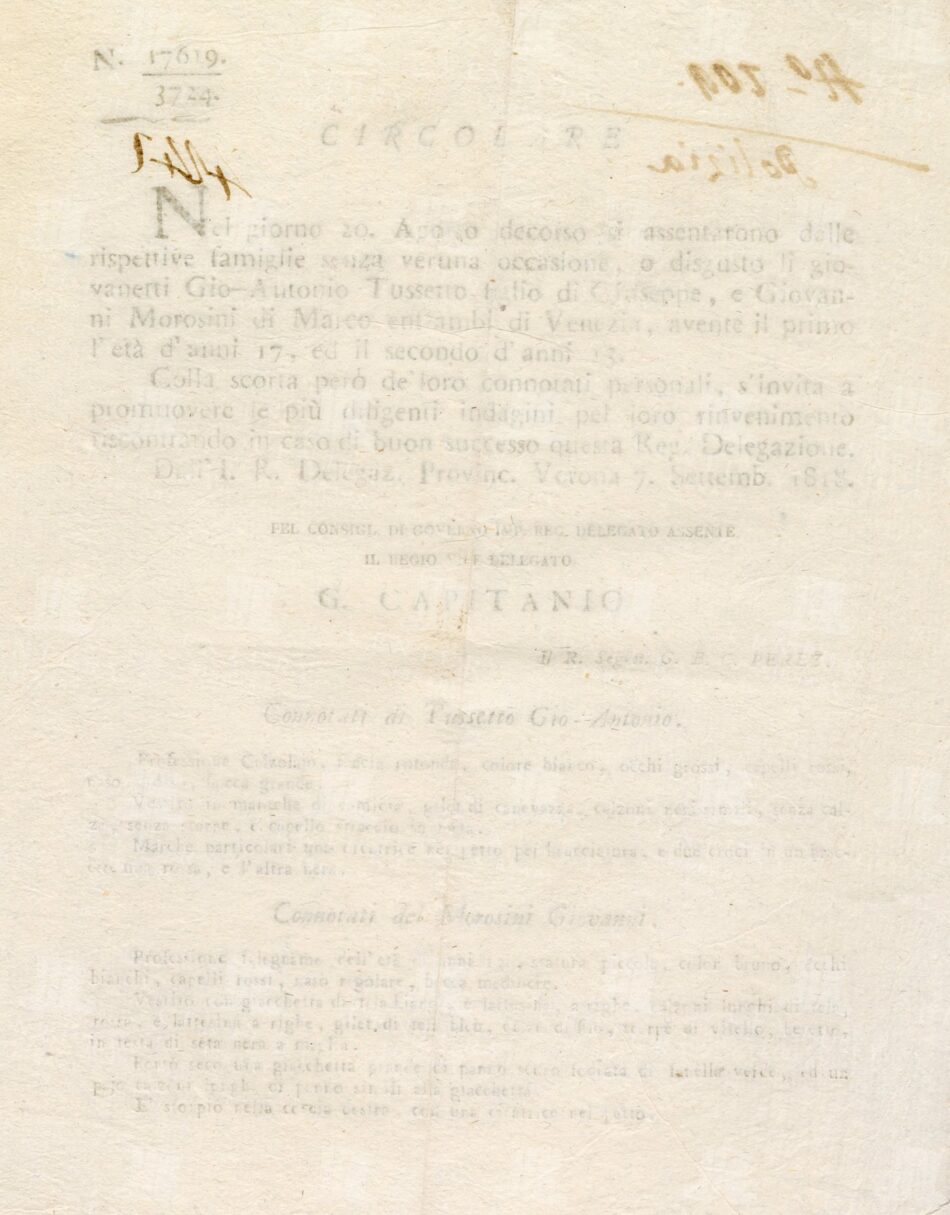 N. 17619.
3724.
Nº 709.
Polizia
CIRCOLARE
Nel giorno 20. Agosto decorso si assentarono dalle
rispettive famiglie senza veruna occasione, o disgusto li gio-
vanetti Gio-Antonio Tussetto figlio di Giuseppe, e Giovan-
ni Morosini di Marco entrambi di Venezia, avente il primo
l'età d'anni 17, ed il secondo d'anni 13.
Colla scorta però de' loro connotati personali, s'invita a
promuovere le più diligenti indagini pel loro rinvenimento
riscontrando in caso di buon successo questa Reg. Delegazione.
Dall' I. R. Delegaz. Provinc. Verona 7. Settemb. 1818.
PEL CONSIGL. DI GOVERNO IMP. REG. DELEGATO ASSENTE
IL REGIO VICE DELEGATO
G. CAPITANIO
Il R. Segret. G. B. C.
Connotati di Tussetto Gio-Antonio.
Professione Calzolajo, faccia rotonda, colore bianco, occhi grossi, capelli rossi,
naso bocca grande.
Vestito in maniche di camicia, gilet di calzoni neri senza cal-
ze, senza scarpe, e capello in testa.
Marche particolari una cicatrice nel petto per e due croci in un brac-
cio una rossa, e l'altra nera.
Connotati del Morosini Giovanni.
Professione falegname dell'età d'anni statura piccola, color bruno, occhi
bianchi, capelli rossi, naso regolare, bocca mediocre.
Vestito con giacchetta di tela a righe, calzoni lunghi di tela,
rossa, e lattesina a righe, gilet di tela bleu, scarpe di vitello, beretto,
in testa di seta nera a maglia.
Portò seco una giacchetta di panno scuro fodrata di flanella verde, ed un
pajo calzoni lunghi di panno simili alla giacchetta.
E' storpio nella coscia destra, con una cicatrice nel petto.